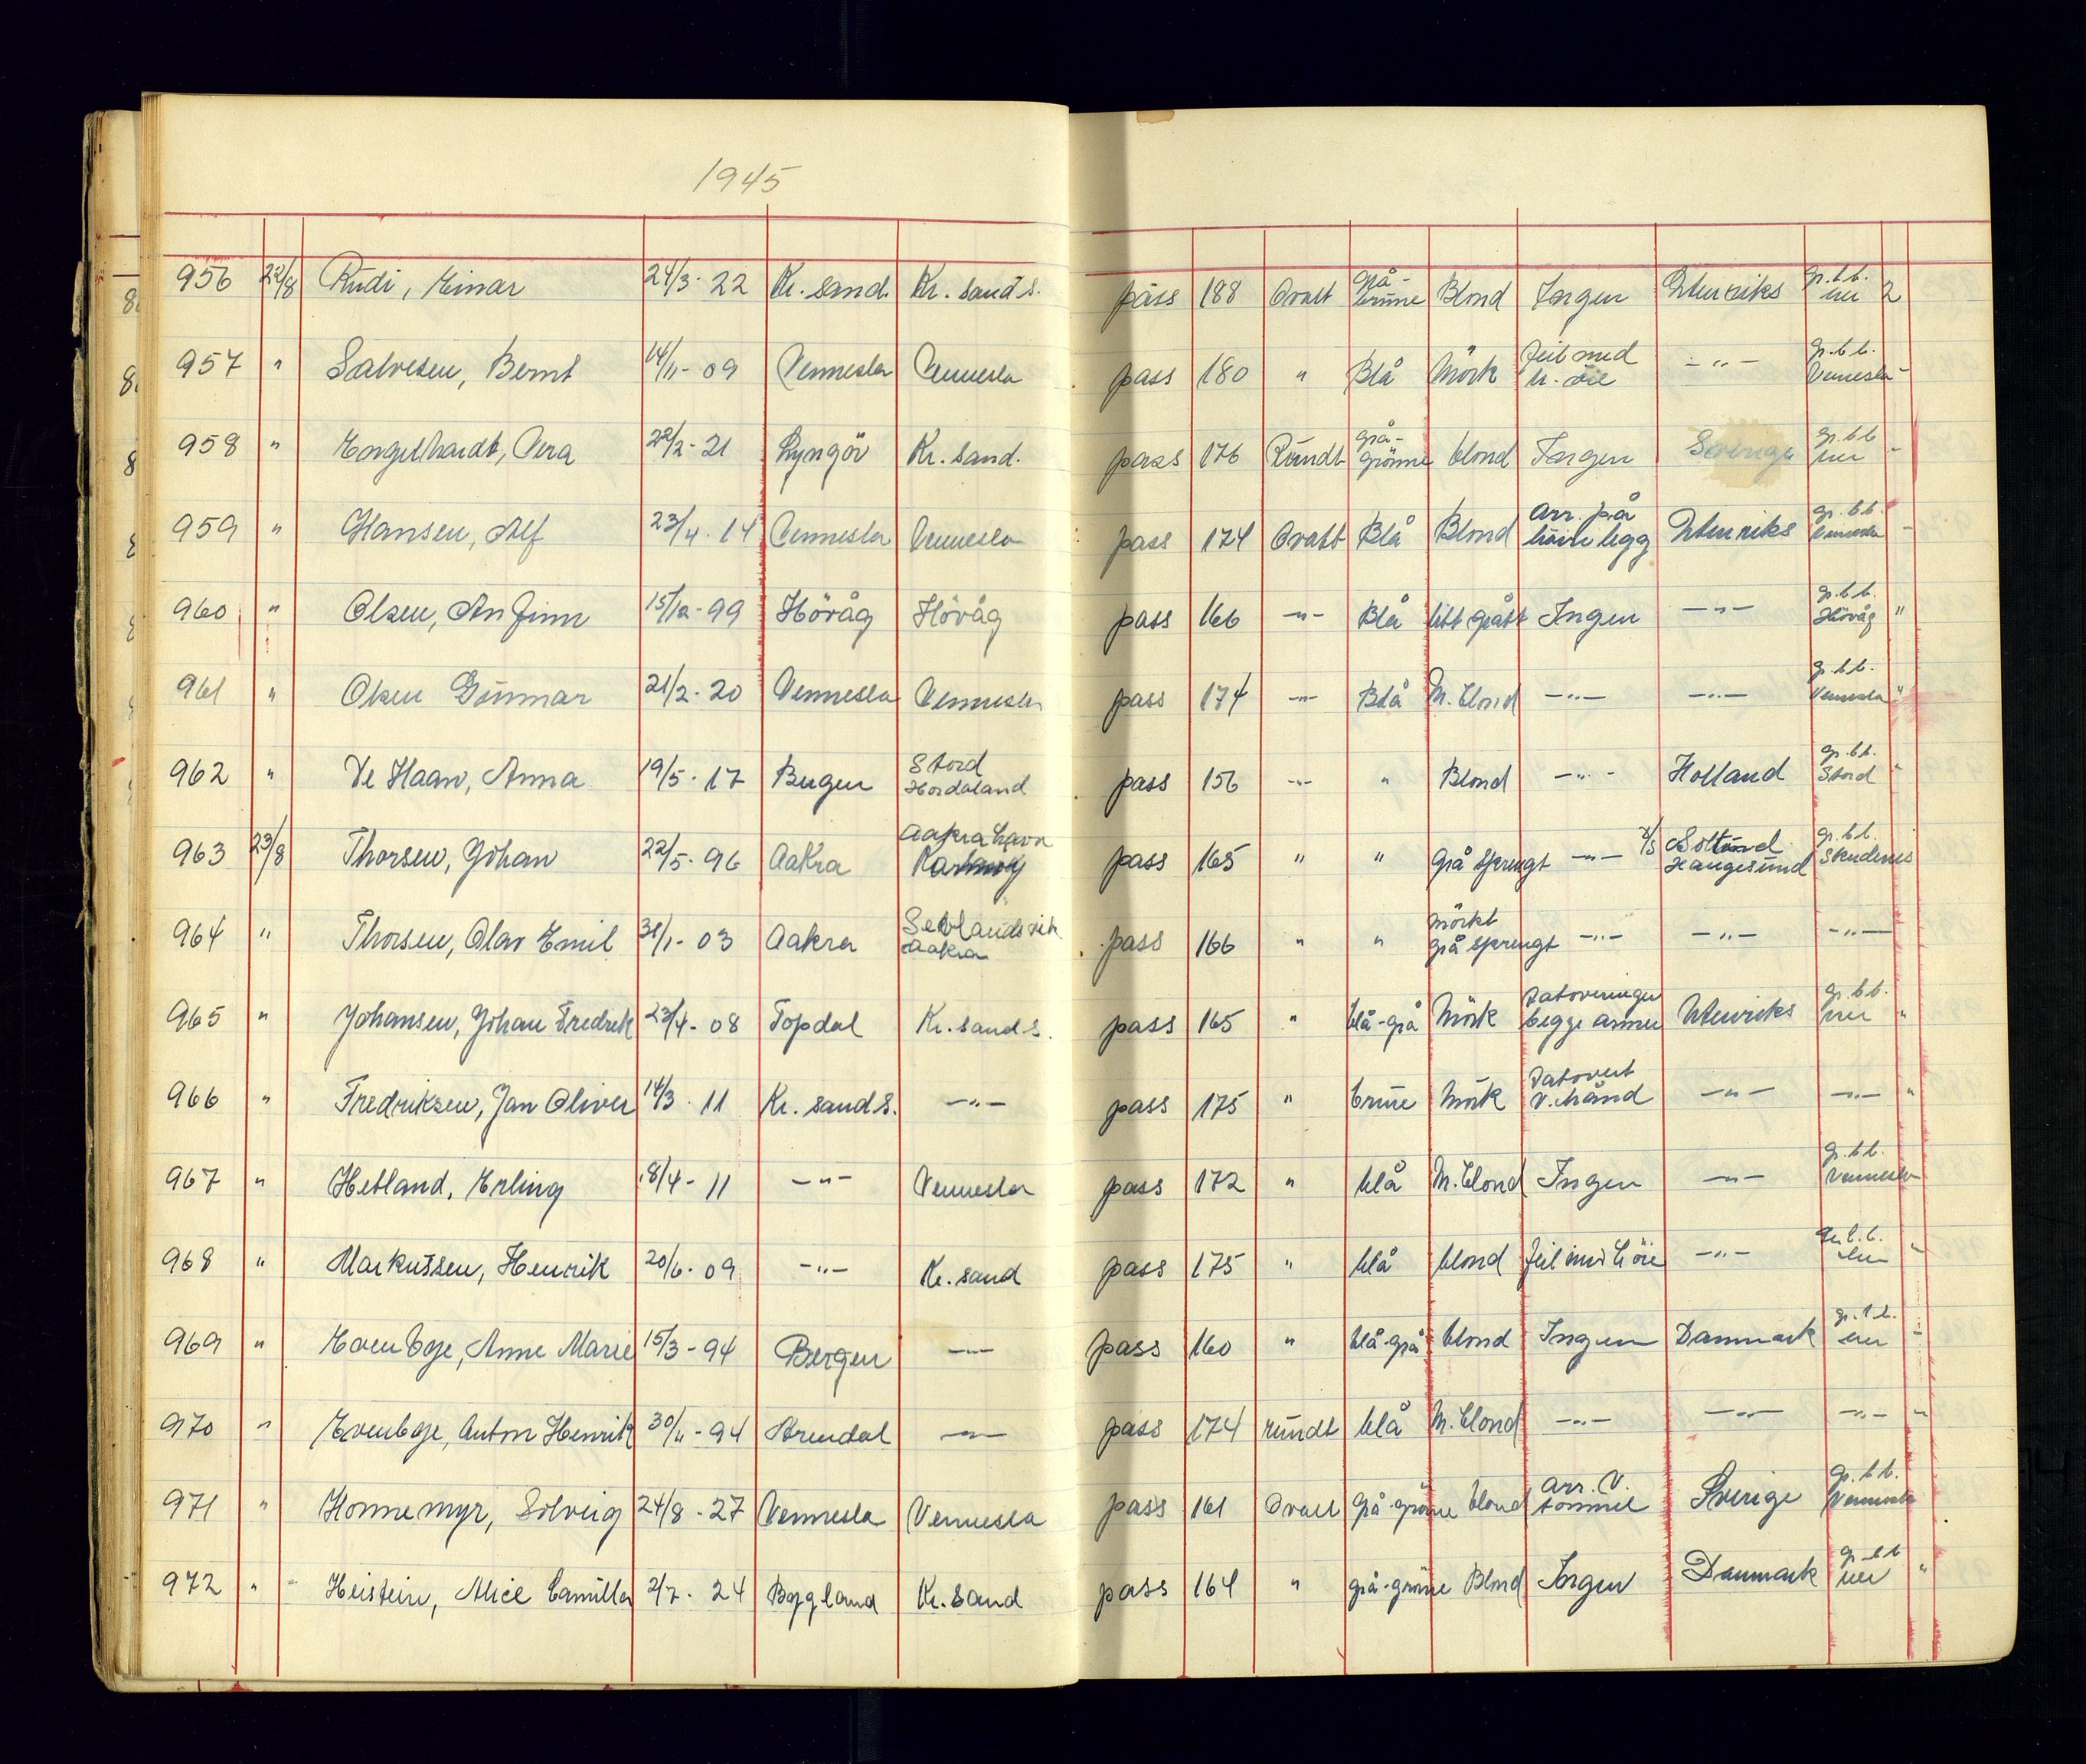 1945
956 22/8 Rudi, Einar 24/3-22 Kr. sand. Kr. sand s. pass 188 Ovalt grå-brune Blond Ingen Utenriks gr.b.b. her 2
957 " Salvesen, Bernt 14/11-09 Vennesla Vennesla pass 180 " Blå Mörk feil med h. öie -"- gr.b.b. Vennesla -
958 " Engelhardt, Vera 22/2-21 Lyngör Kr. sand. pass 176 Rundt grå-grönne blond Ingen Sverige gr.b.b her -
959 " Hansen, Alf 23/4-14 Vennesla Vennesla pass 174 Ovalt Blå Blond arr. på höire legg Utenriks gr.b.b. Vennesla -
960 " Olsen, An Finn 15/12-99 Hövåg Hövåg pass 166 -"- Blå litt grått Ingen -"- gr.b.b. Hövåg "
961 " Olsen Gunnar 21/2-20 Vennesla Vennesla pass 174 -"- Blå M. blond -"- -"- gr.b.b. Vennesla "
962 " De Haan, Anna 19/5-17 Bergen Stord Hordaland pass 156 -"- " Blond -"- Holland gr.b.b. Stord "
963 23/8 Thorsen, Johan 22/5-96 Aakra Aakrahavn pass 165 " " grå sprengt -"- Haugesund gr.b.b. Skudenes
964 " Thorsen, Olav Emil 31/1-03 Aakra Aakra pass 166 " " mörkt grå sprengt -"- -"- -"-
965 " Johansen, Johan Fredrik 23/4-08 Topdal Kr. sand s. pass 165 " blå-grå Mörk Tatoveringer begge armer Utenriks gr.b.b. her "
966 " Fredriksen, Jan Oliver 14/3-11 Kr. sand s. -"- pass 175 " brune Mörk Tatovert v. hånd -"- -"- "
967 " Hetland, Erling 18/4-11 -"- Vennesla pass 172 " blå M. blond Ingen -"- gr.b.b. Vennesla
968 " Markussen, Henrik 20/6-09 -"- Kr. sand pass 175 " blå blond feil med h öie -"- gr.b.b. her "
969 " Evenbye, Anne Marie 15/3-94 Bergen -"- pass 160 " blå-grå blond Ingen Danmark gr.b.b. her -
970 " Evenbye, Anton Henrik 30/11-94 Arendal -"- pass 174 rundt blå M. blond -"- -"- -"- -
971 " Honnemyr, Solveig 24/8-27 Vennesla Vennesla pass 161 Ovalt Grå-grönne blond arr. V. tommel Sverige gr.b.b. Vennesla
972 " Heistein, Alice Camilla 2/7-24 Bygland Kr. sand pass 164 " grå-grönne Blond Ingen Danmark gr.b.b her "